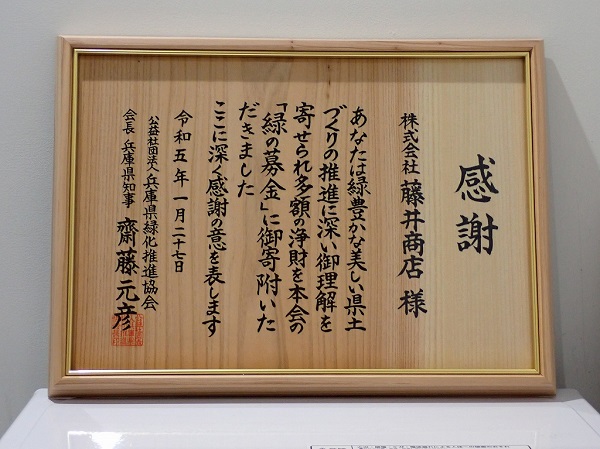 感謝
株式会社 藤井商店 様
あなたは緑豊かな美しい県土
づくりの推進に深い御理解を
寄せられ多額の浄財を本会の
「緑の募金」に御寄附いた
だきました
ここに深く感謝の意を表します
令和五年一月二十七日
公益社団法人兵庫県緑化推進協会
会長 兵庫県知事 齋藤元彦